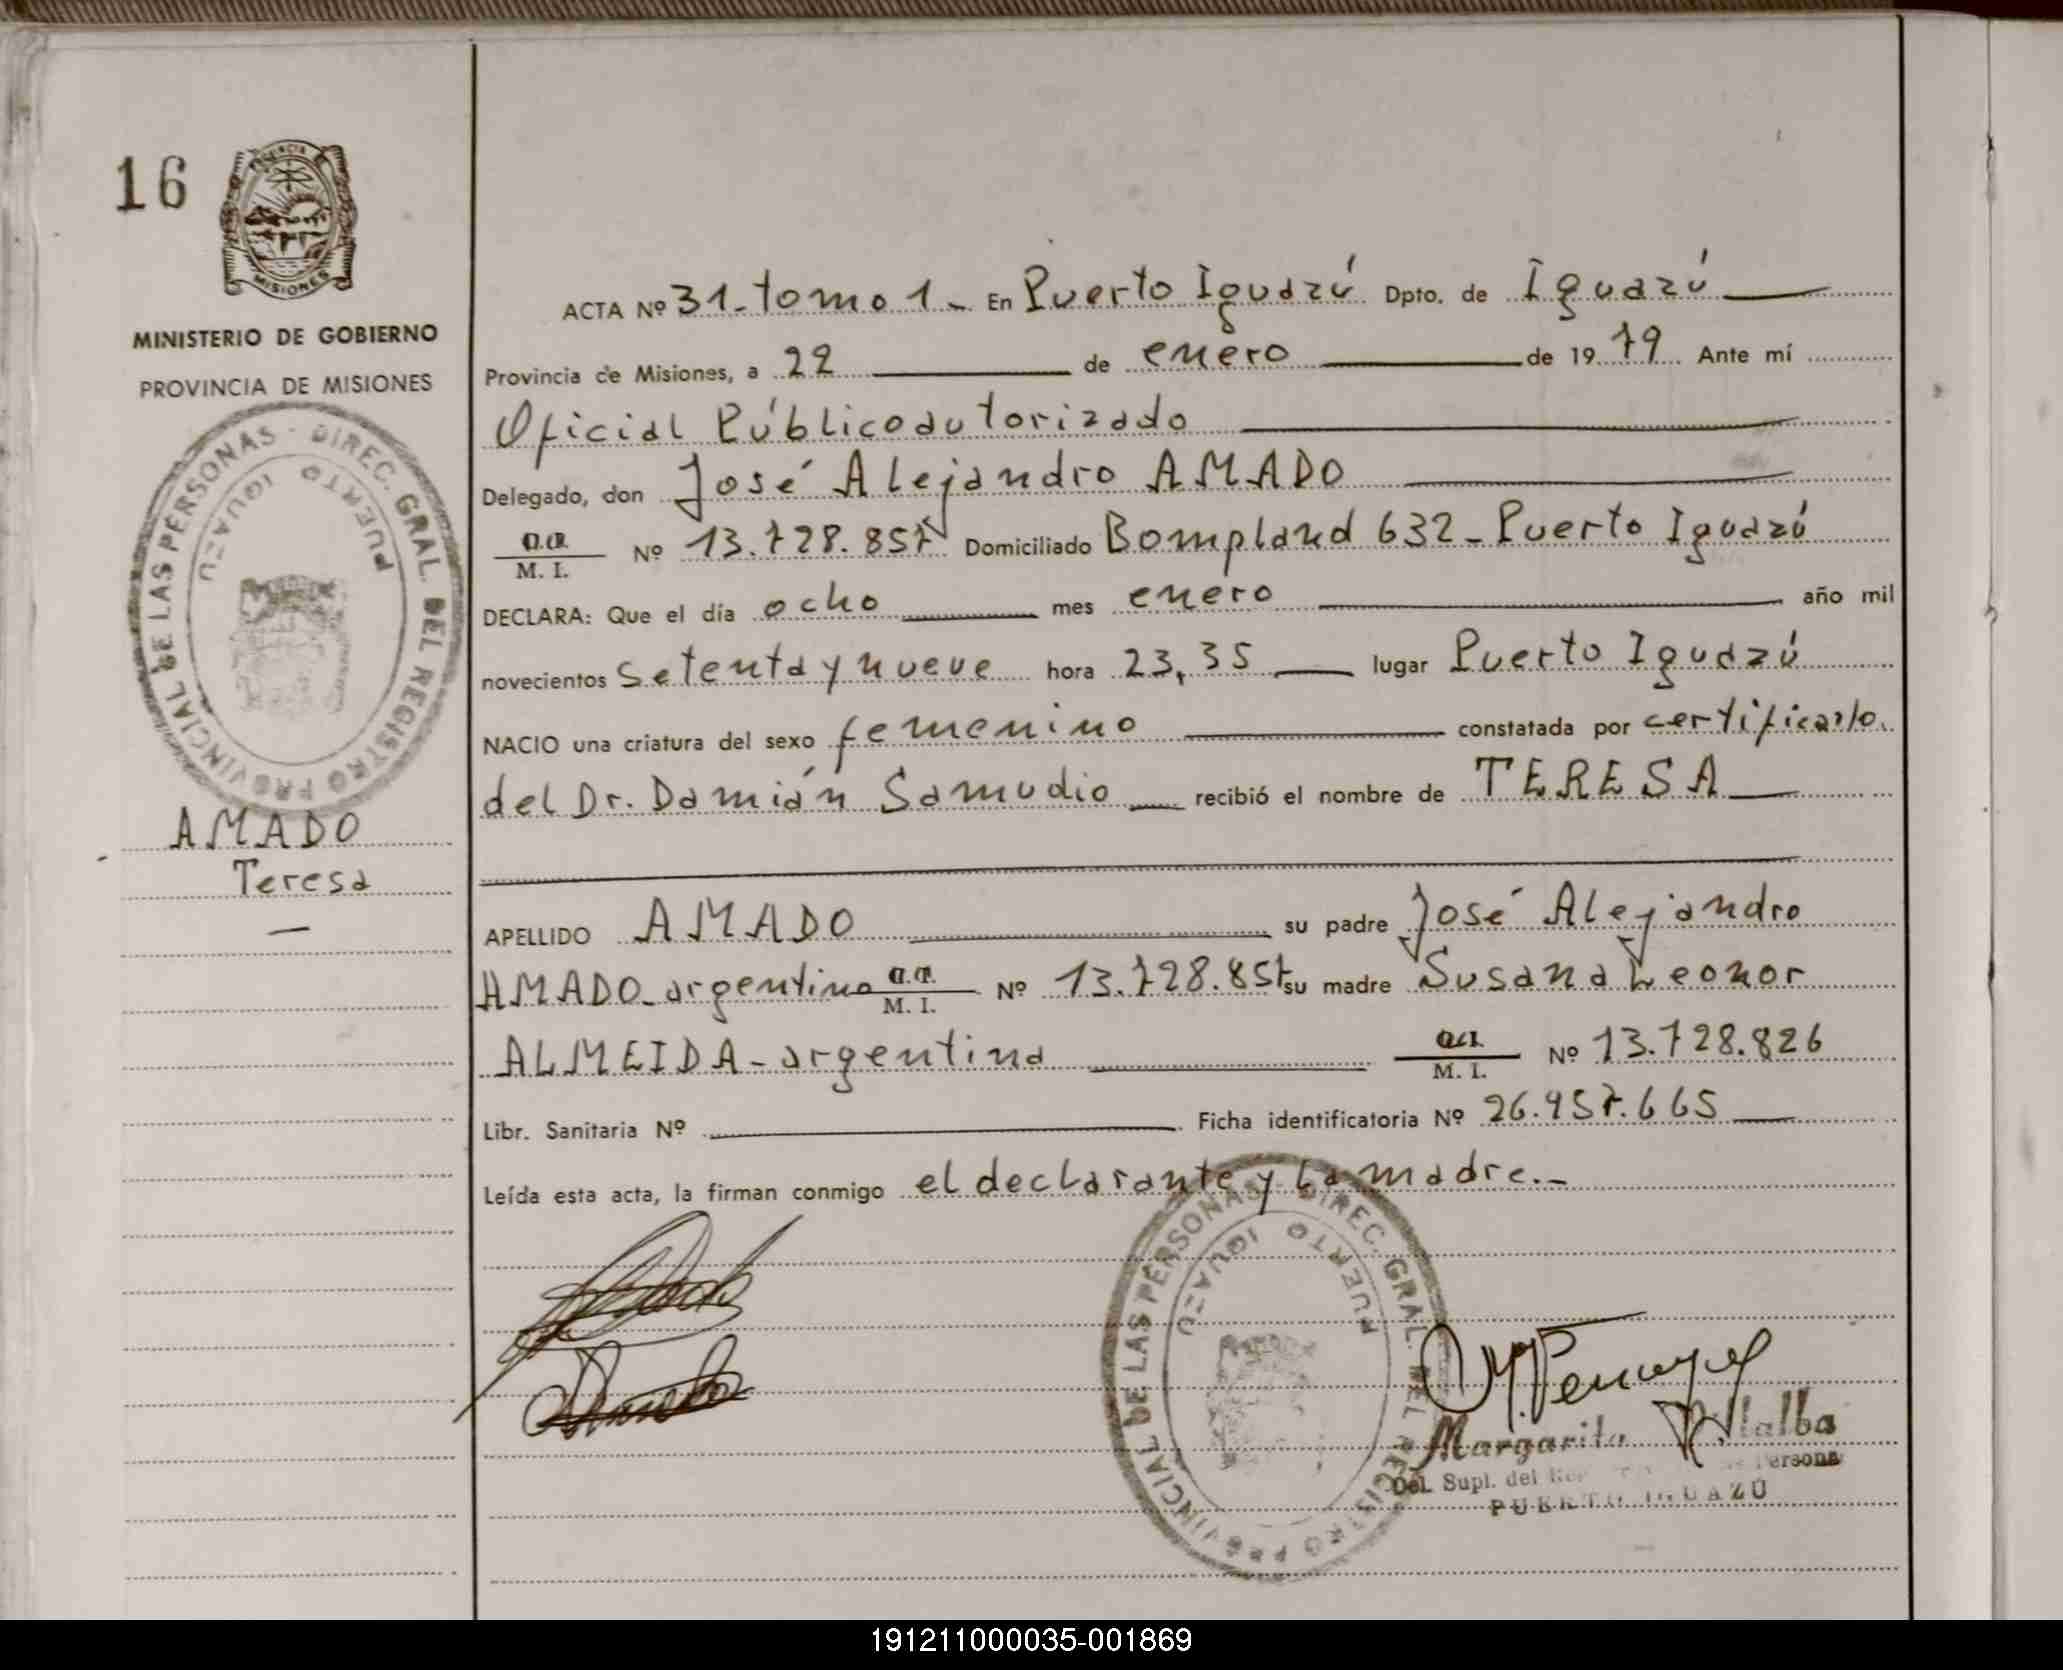 16
MISIONES
MINISTERIO DE GOBIERNO
PROVINCIA DE MISIONES
DIREC. GRAL. DEL REGISTRO PROVINCIAL DE LAS PERSONAS
PUERTO IGUAZU
AMADO
Teresa
ACTA Nº 31-tomo 1- En Puerto Iguazú Dpto. de Iguazú
Provincia de Misiones, a 22 de enero de 1979 Ante mí
Oficial Público autorizado
Delegado, don José Alejandro AMADO
M. I. Nº 13.728.857 Domiciliado Bompland 632-Puerto Iguazú
DECLARA: Que el día ocho mes enero año mil
novecientos setenta y nueve hora 23,35 lugar Puerto Iguazú
NACIO una criatura del sexo femenino constatada por certificado
del Dr. Damián Samudio recibió el nombre de TERESA
APELLIDO AMADO su padre José Alejandro
AMADO-argentino M. I. Nº 13.728.857 su madre Susana Leonor
ALMEIDA-argentina M. I. Nº 13.728.826
Libr. Sanitaria Nº Ficha identificatoria Nº 26.957.665
Leída esta acta, la firman conmigo el declarante y la madre.-
DIREC. GRAL. DEL REGISTRO PROVINCIAL DE LAS PERSONAS
PUERTO IGUAZU
Margarita Villalba
Del. Supl. del
PUERTO IGUAZÚ
191211000035-001869